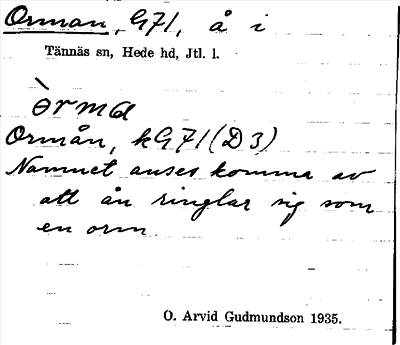 Orman, G71, å i
Tännäs sn, Hede hd, Jtl. l.
òrma
Ormån, kG71(D3)
Namnet anses komma av
att ån ringlar sig som
en orm.
O. Arvid Gudmundson 1935.